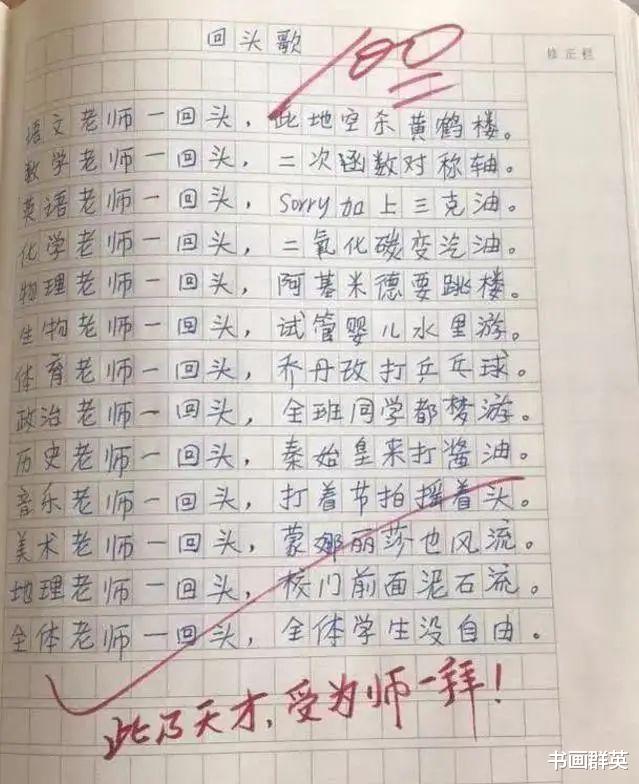 回头歌
100
修正栏
语文老师一回头，此地空余黄鹤楼。
数学老师一回头，二次函数对称轴。
英语老师一回头，Sorry加上三克油。
化学老师一回头，二氧化碳变汽油。
物理老师一回头，阿基米德要跳楼。
生物老师一回头，试管婴儿水里游。
体育老师一回头，乔丹改打乒乓球。
政治老师一回头，全班同学都梦游。
历史老师一回头，秦始皇来打酱油。
音乐老师一回头，打着节拍摇着头。
美术老师一回头，蒙娜丽莎也风流。
地理老师一回头，校门前面泥石流。
全体老师一回头，全体学生没自由。
此乃天才，受为师一拜！
书画群英